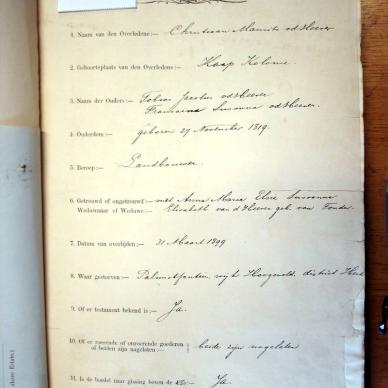 1. Naam van den Overledene:— Christiaan Maurits vd Heever
2. Geboorteplaats van den Overledene:— Kaap Kolonie.
3. Namen der Ouders:— Tobias Jacobus vd Heever
Susanna vd Heever.
4. Ouderdom:— geboren 27 November 1819.
5. Beroep:— Landbouwer.
6. Getrouwd of ongetrouwd:— met Anna Maria Elsie Susanna
Weduwnaar of Weduwe: Elisabeth van d Heever geb van Tonder.
7. Datum van overlijden:— 31 Maart 1899
8. Waar gestorven:— Palmietfontein wijk Hoogeveld, district
9. Of er testament bekend is:— Ja.
10. Of er roerende of onroerende goederen
of beiden zijn nagelaten:— beide zijn nagelaten
11. Is de boedel naar gissing boven de Ja.